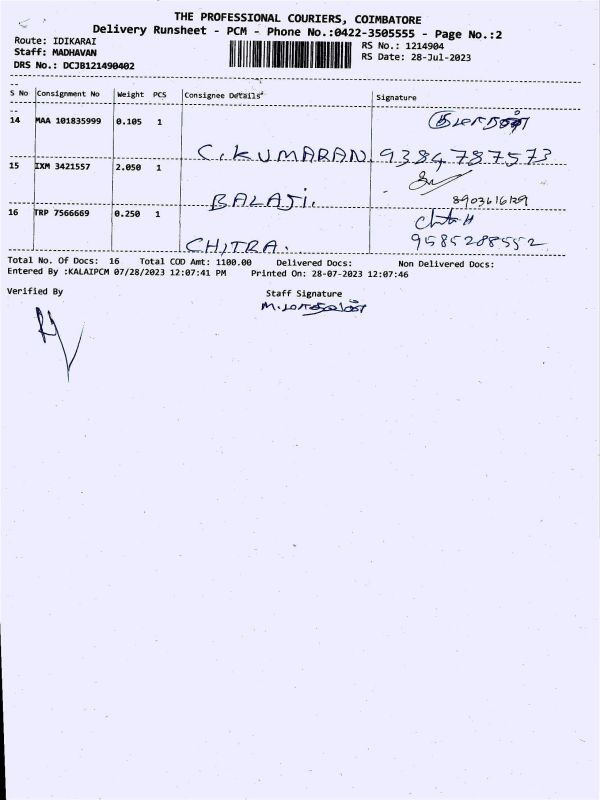 THE PROFESSIONAL COURIERS, COIMBATORE
Delivery Runsheet - PCM - Phone No.:0422-3505555 - Page No.:2
Route: IDIKARAI
Staff: MADHAVAN
DRS No.: DCJB121490402
RS No.: 1214904
RS Date: 28-Jul-2023
S No Consignment No Weight PCS Consignee Details Signature
14 MAA 101835999 0.105 1 குமரன்
C. KUMARAN 9384787573
15 IXM 3421557 2.050 1
BALAJI. 8903616129
16 TRP 7566669 0.250 1
CHITRA. 9585288552
Total No. Of Docs: 16 Total COD Amt: 1100.00 Delivered Docs: Non Delivered Docs:
Entered By :KALAIPCM 07/28/2023 12:07:41 PM Printed On: 28-07-2023 12:07:46
Verified By Staff Signature
M. மாதவன்